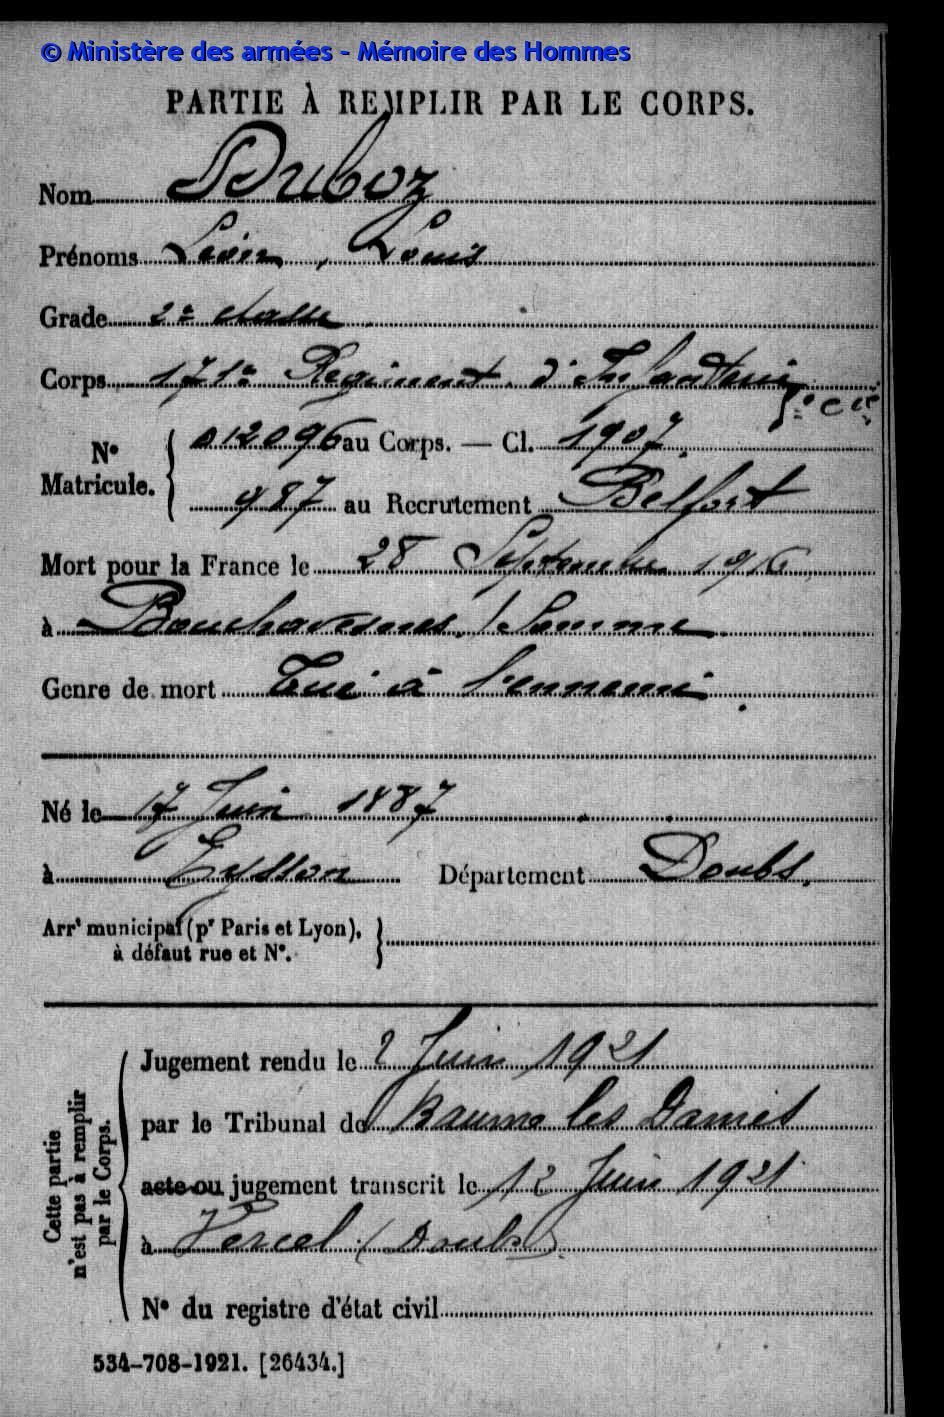 © Ministère des armées - Mémoire des Hommes
PARTIE À REMPLIR PAR LE CORPS.
Nom Duboz
Prénoms Léon, Louis
Grade 2e classe
Corps 171e Régiment d'Infanterie
7e Cie
N° Matricule. 012096 au Corps. — Cl. 1907.
987 au Recrutement Belfort
Mort pour la France le 28 Septembre 1916
à Bouchavesnes / Somme
Genre de mort Tué à l'ennemi.
Né le 17 Juin 1887
à Eysson Département Doubs.
Arrt municipal (pr Paris et Lyon),
à défaut rue et N°.
Cette partie
n'est pas à remplir
par le Corps.
Jugement rendu le 2 Juin 1921
par le Tribunal de Baume les Dames
acte ou jugement transcrit le 12 Juin 1921
à Vercel (Doubs)
N° du registre d'état civil
534-708-1921. [26434.]